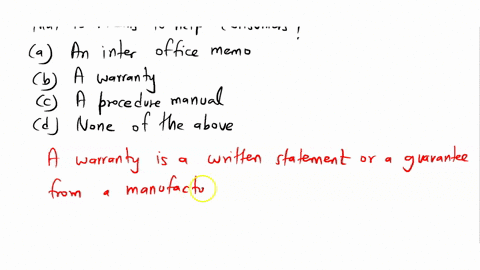 to help consumers?
(a) An inter office memo
(b) A warranty
(c) A procedure manual
(d) None of the above
A warranty is a written statement or a guarantee
from a manufactu